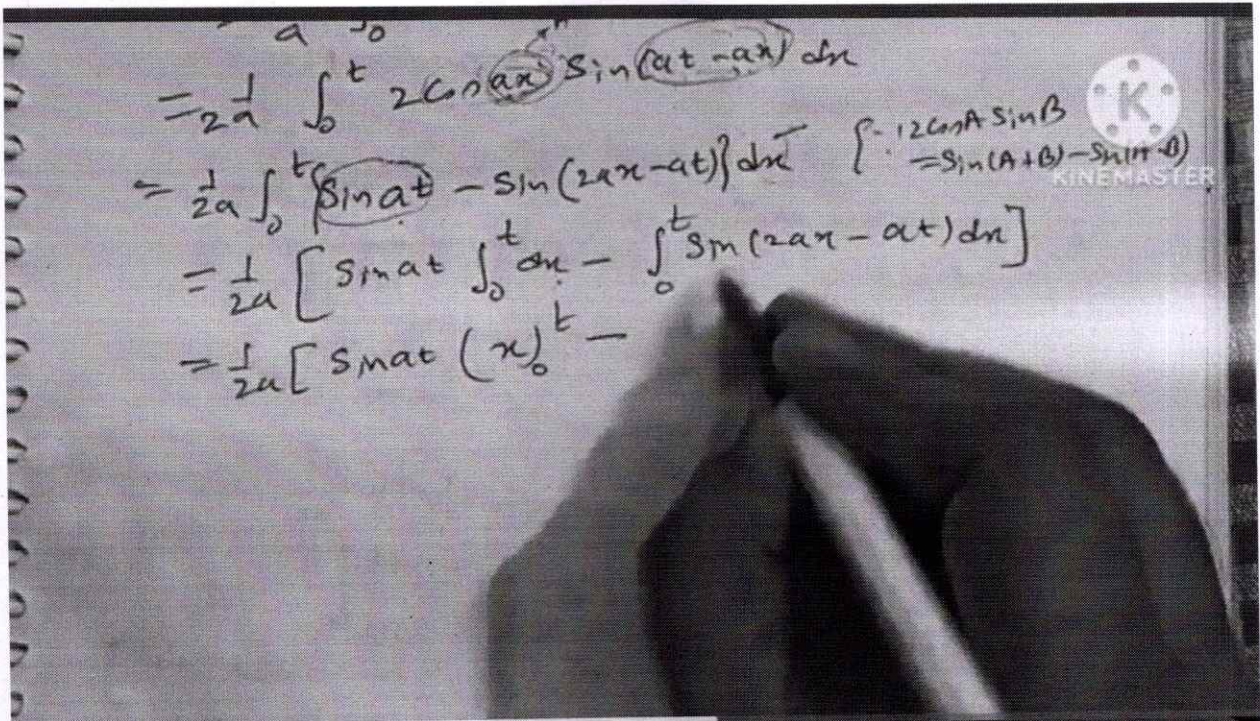 = 1/2a ∫₀ᵗ 2cos ax sin(at - ax) dx
= 1/2a ∫₀ᵗ {sin at - sin(2ax - at)} dx {∵ 2cosA sinB
= sin(A+B) - sin(A-B)
= 1/2a [sin at ∫₀ᵗ dx - ∫₀ᵗ sin(2ax - at) dx]
= 1/2a [sin at (x)₀ᵗ -
K
KINEMASTER